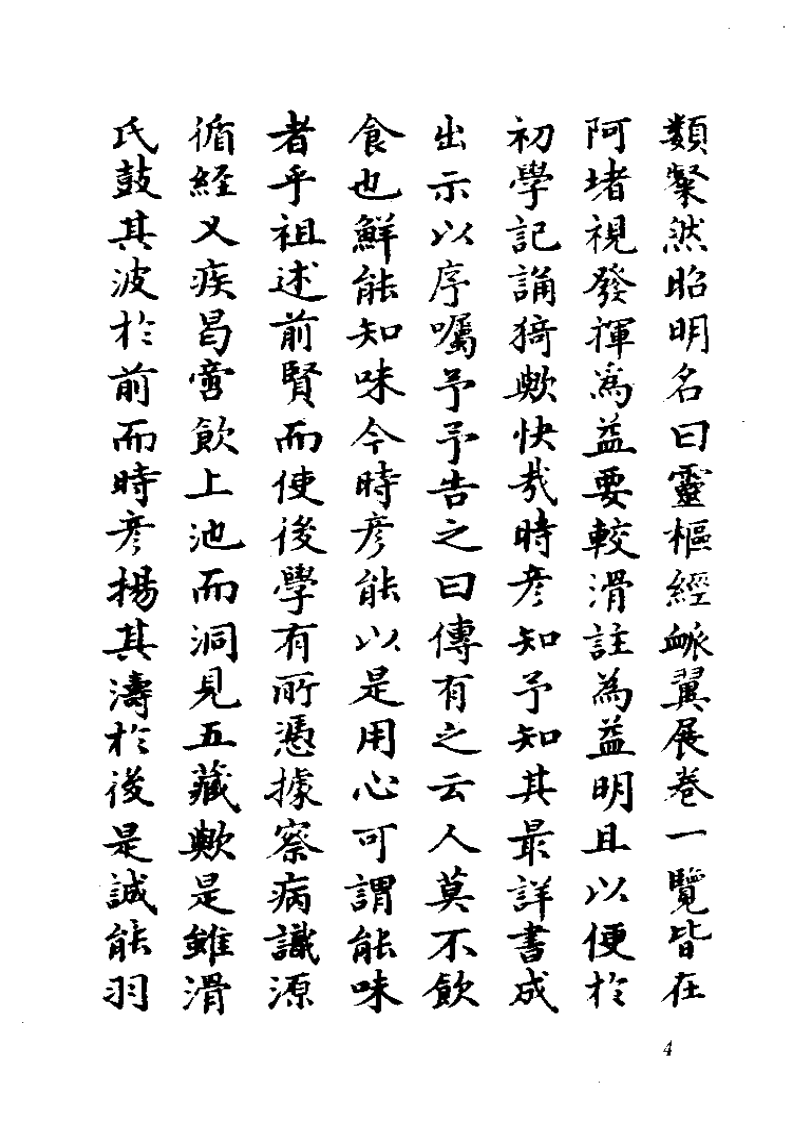 類粲然昭明名曰靈樞經脈翼展卷一覽皆在
阿堵視發揮為益要較滑註為益明且以便於
初學記誦猗歟快哉時彥知予知其最詳書成
出示以序囑予予告之曰傳有之云人莫不飲
食也鮮能知味今時彥能以是用心可謂能味
者乎祖述前賢而使後學有所憑據察病識源
循經乂疾曷啻飲上池而洞見五藏歟是雖滑
氏鼓其波於前而時彥揚其濤於後是誠能羽
4